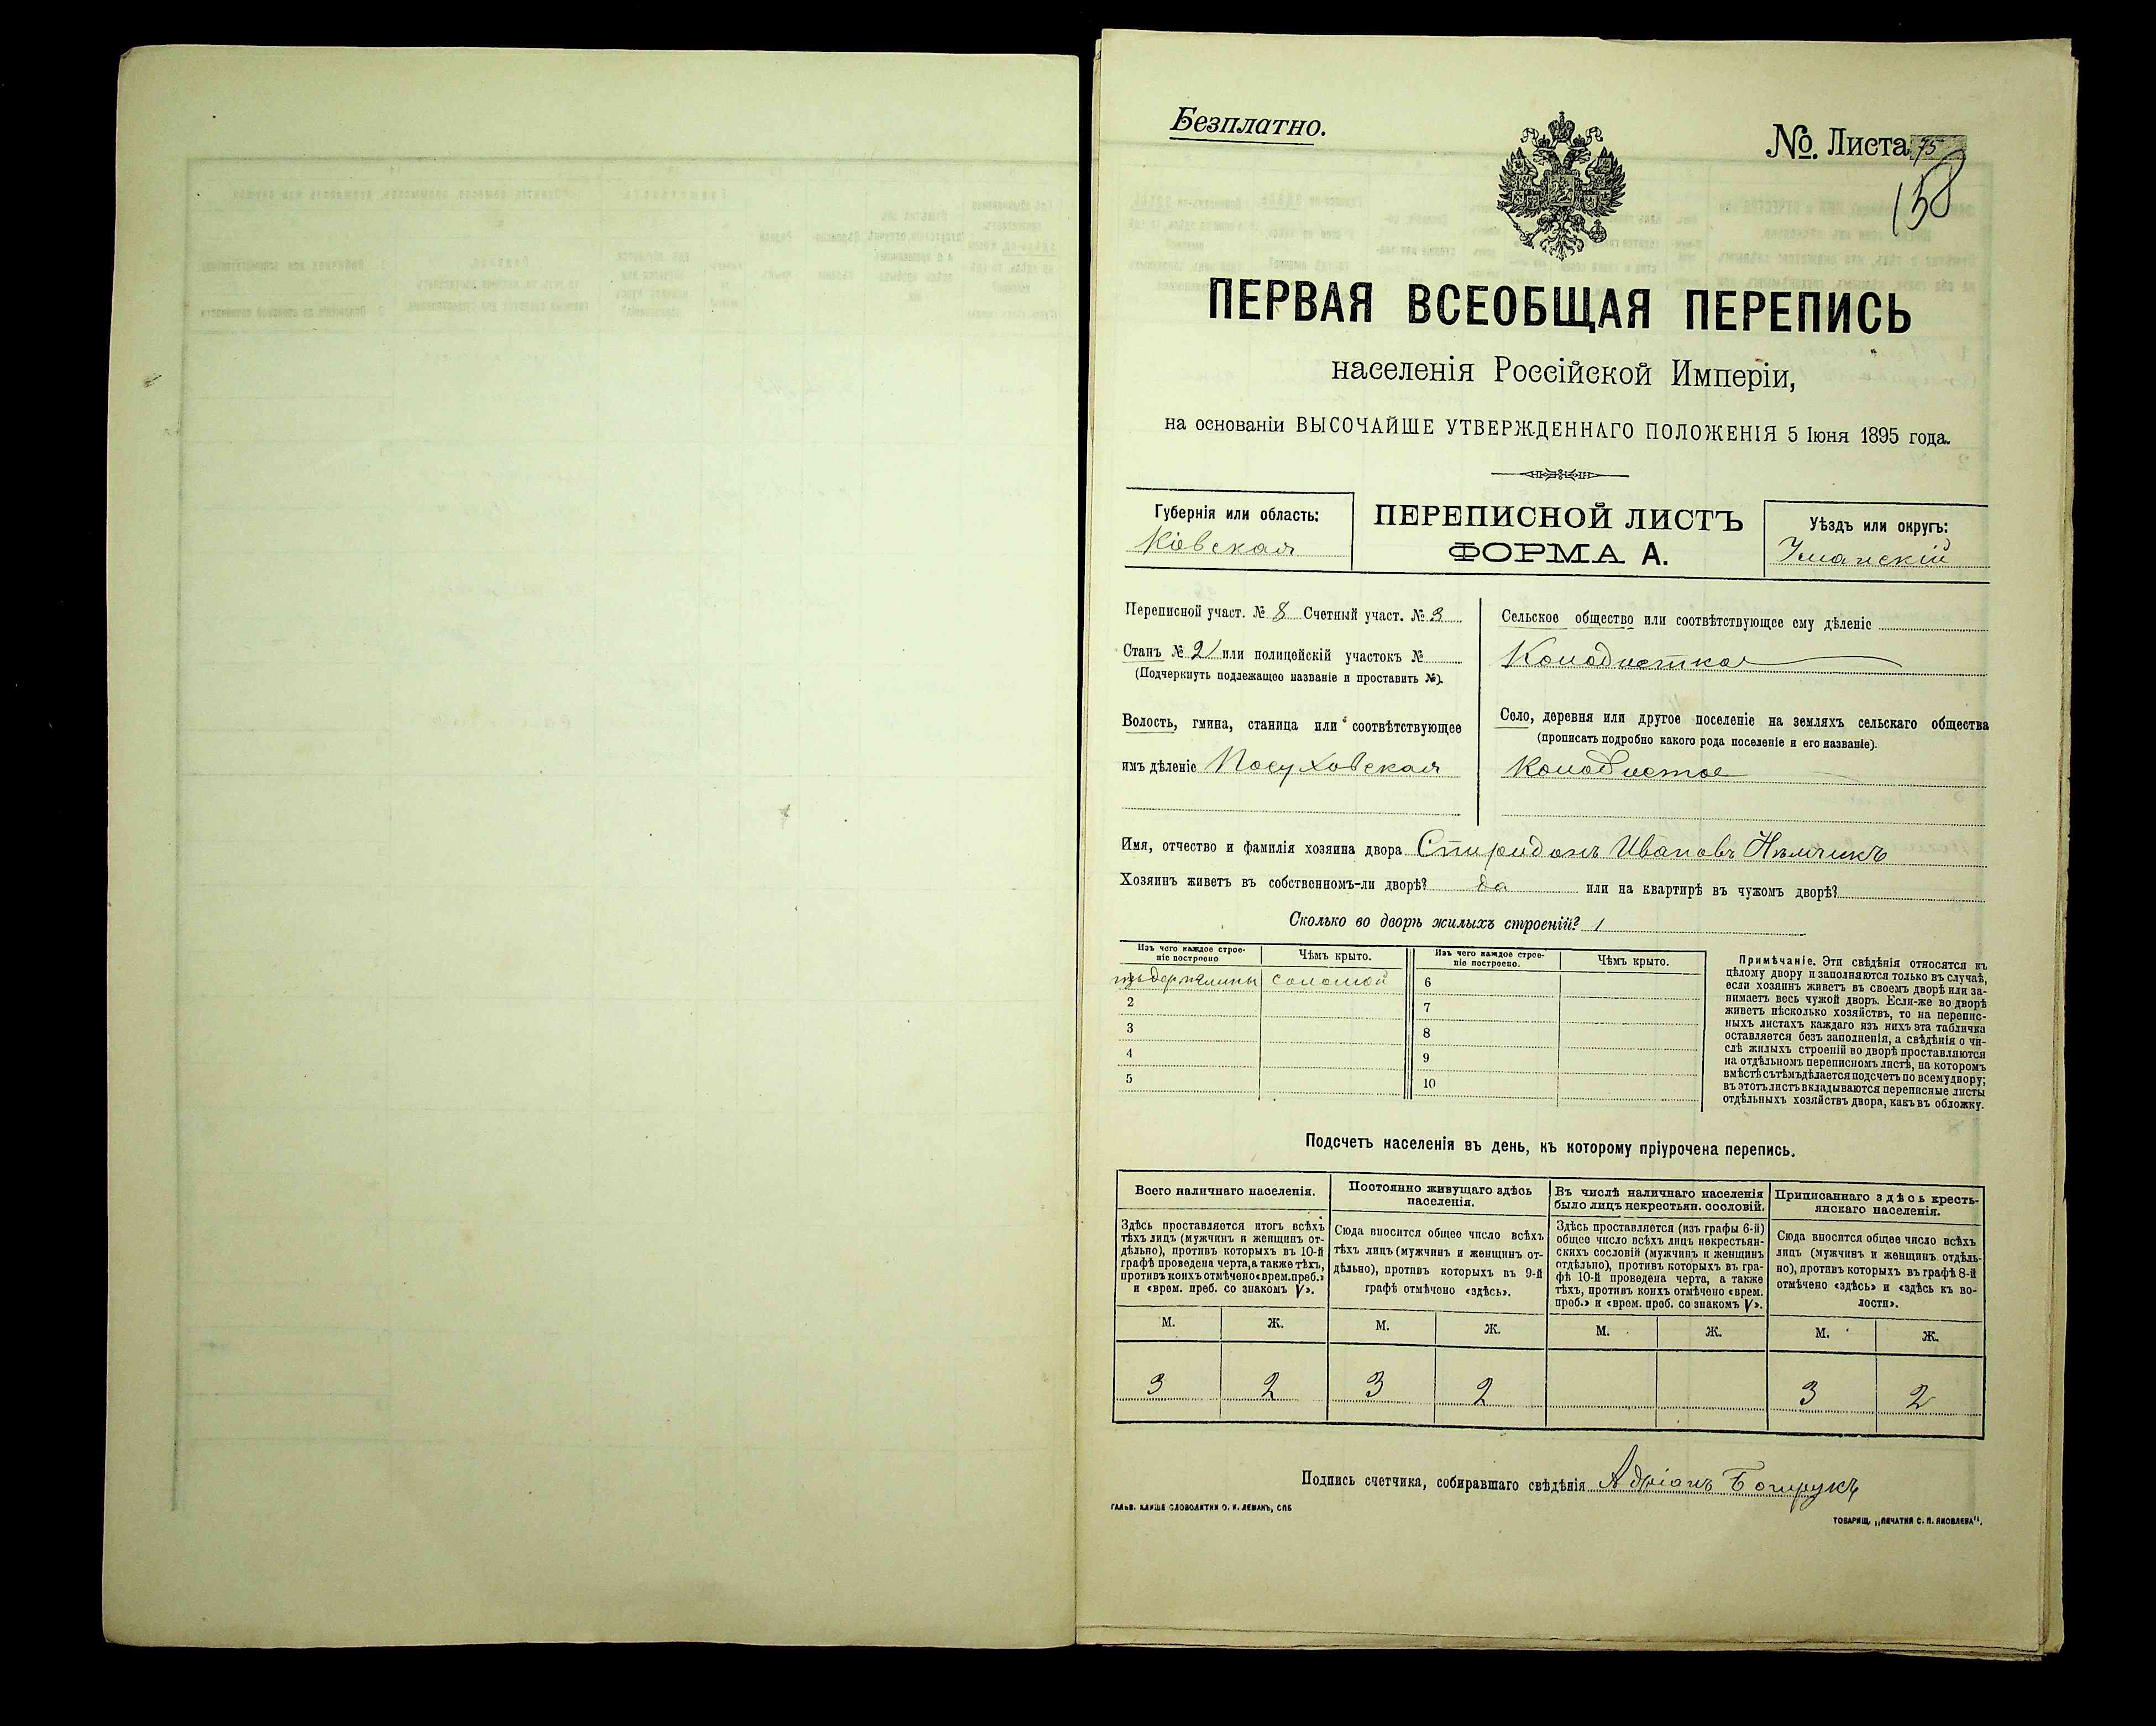 Безплатно.
№. Листа 75
158
ПЕРВАЯ ВСЕОБЩАЯ ПЕРЕПИСЬ
населенія Россійской Имперіи,
на основаніи ВЫСОЧАЙШЕ УТВЕРЖДЕННАГО ПОЛОЖЕНІЯ 5 Іюня 1895 года.
Губернія или область:
Кіевская
ПЕРЕПИСНОЙ ЛИСТЪ
ФОРМА А.
Уѣздъ или округъ:
Уманскій
Переписной участ. № 8 Счетный участ. № 3
Станъ № 2 или полицейскій участокъ №
(Подчеркнуть подлежащее названіе и проставить №).
Волость, гмина, станица или соотвѣтствующее
имъ дѣленіе Посуховская
Сельское общество или соотвѣтствующее ему дѣленіе
Колодистка
Село, деревня или другое поселеніе на земляхъ сельскаго общества
(прописать подробно какого рода поселеніе и его названіе).
Колодистое
Имя, отчество и фамилія хозяина двора Спиридонъ Ивановъ Нѣмчикъ
Хозяинъ живетъ въ собственномъ-ли дворѣ? да или на квартирѣ въ чужомъ дворѣ?
Сколько во дворѣ жилыхъ строеній? 1
Изъ чего каждое строе-
ніе построено
Чѣмъ крыто.
Изъ чего каждое строе-
ніе построено.
Чѣмъ крыто.
соломой
6
2
7
3
8
4
9
5
10
Примѣчаніе. Эти свѣдѣнія относятся къ
цѣлому двору и заполняются только въ случаѣ,
если хозяинъ живетъ въ своемъ дворѣ или за-
нимаетъ весь чужой дворъ. Если-же во дворѣ
живетъ нѣсколько хозяйствъ, то на перепис-
ныхъ листахъ каждаго изъ нихъ эта табличка
оставляется безъ заполненія, а свѣдѣнія о чи-
слѣ жилыхъ строеній во дворѣ проставляются
на отдѣльномъ переписномъ листѣ, на которомъ
вмѣстѣ съ тѣмъ дѣлается подсчетъ по всему двору;
въ этотъ листъ вкладываются переписные листы
отдѣльныхъ хозяйствъ двора, какъ въ обложку.
Подсчетъ населенія въ день, къ которому пріурочена перепись.
Всего наличнаго населенія.
Здѣсь проставляется итогъ всѣхъ
тѣхъ лицъ (мужчинъ и женщинъ от-
дѣльно), противъ которыхъ въ 10-й
графѣ проведена черта, а также тѣхъ,
противъ коихъ отмѣчено «врем. преб.»
и «врем. преб. со знакомъ V».
Постоянно живущаго здѣсь
населенія.
Сюда вносится общее число всѣхъ
тѣхъ лицъ (мужчинъ и женщинъ от-
дѣльно), противъ которыхъ въ 9-й
графѣ отмѣчено «здѣсь».
Въ числѣ наличнаго населенія
было лицъ некрестьян. сословій.
Здѣсь проставляется (изъ графы 6-й)
общее число всѣхъ лицъ некрестьян-
скихъ сословій (мужчинъ и женщинъ
отдѣльно), противъ которыхъ въ гра-
фѣ 10-й проведена черта, а также
тѣхъ, противъ коихъ отмѣчено «врем.
преб.» и «врем. преб. со знакомъ V».
Приписаннаго здѣсь кресть-
янскаго населенія.
Сюда вносится общее число всѣхъ
лицъ (мужчинъ и женщинъ отдѣль-
но), противъ которыхъ въ графѣ 8-й
отмѣчено «здѣсь» и «здѣсь къ во-
лости».
М. Ж. М. Ж. М. Ж. М. Ж.
3 2 3 2 3 2
Подпись счетчика, собиравшаго свѣдѣнія Адріанъ
ГАЛЬВ. КЛИШЕ СЛОВОЛИТНИ О. И. ЛЕМАНЪ, СПБ
ТОВАРИЩ. „ПЕЧАТНЯ С. П. ЯКОВЛЕВА".